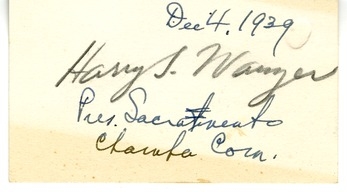 Dec 4, 1939
Harry S. Wanzer
Pres. Sacramento
Chamber Com.